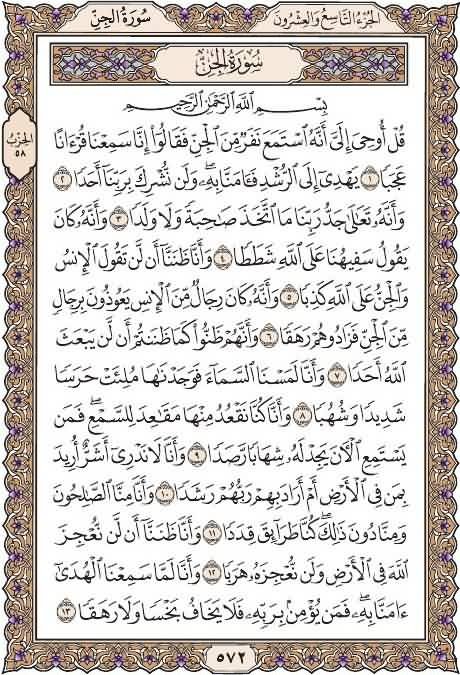 سُورَةُ الجِنِّ
الجُزْءُ التَّاسِعُ وَالعِشْرُونَ
سُورَةُ الجِنِّ
الحِزْبُ
٥٨
بِسْمِ اللَّهِ الرَّحْمَٰنِ الرَّحِيمِ
قُلْ أُوحِيَ إِلَيَّ أَنَّهُ ٱسْتَمَعَ نَفَرٌ مِّنَ ٱلْجِنِّ فَقَالُوٓا۟ إِنَّا سَمِعْنَا قُرْءَانًا
عَجَبًا ١ يَهْدِىٓ إِلَى ٱلرُّشْدِ فَـَٔامَنَّا بِهِۦ ۖ وَلَن نُّشْرِكَ بِرَبِّنَآ أَحَدًا ٢
وَأَنَّهُۥ تَعَٰلَىٰ جَدُّ رَبِّنَا مَا ٱتَّخَذَ صَٰحِبَةً وَلَا وَلَدًا ٣ وَأَنَّهُۥ كَانَ
يَقُولُ سَفِيهُنَا عَلَى ٱللَّهِ شَطَطًا ٤ وَأَنَّا ظَنَنَّآ أَن لَّن تَقُولَ ٱلْإِنسُ
وَٱلْجِنُّ عَلَى ٱللَّهِ كَذِبًا ٥ وَأَنَّهُۥ كَانَ رِجَالٌ مِّنَ ٱلْإِنسِ يَعُوذُونَ بِرِجَالٍ
مِّنَ ٱلْجِنِّ فَزَادُوهُمْ رَهَقًا ٦ وَأَنَّهُمْ ظَنُّوا۟ كَمَا ظَنَنتُمْ أَن لَّن يَبْعَثَ
ٱللَّهُ أَحَدًا ٧ وَأَنَّا لَمَسْنَا ٱلسَّمَآءَ فَوَجَدْنَٰهَا مُلِئَتْ حَرَسًا
شَدِيدًا وَشُهُبًا ٨ وَأَنَّا كُنَّا نَقْعُدُ مِنْهَا مَقَٰعِدَ لِلسَّمْعِ ۖ فَمَن
يَسْتَمِعِ ٱلْـَٔانَ يَجِدْ لَهُۥ شِهَابًا رَّصَدًا ٩ وَأَنَّا لَا نَدْرِىٓ أَشَرٌّ أُرِيدَ
بِمَن فِى ٱلْأَرْضِ أَمْ أَرَادَ بِهِمْ رَبُّهُمْ رَشَدًا ١٠ وَأَنَّا مِنَّا ٱلصَّٰلِحُونَ
وَمِنَّا دُونَ ذَٰلِكَ ۖ كُنَّا طَرَآئِقَ قِدَدًا ١١ وَأَنَّا ظَنَنَّآ أَن لَّن نُّعْجِزَ
ٱللَّهَ فِى ٱلْأَرْضِ وَلَن نُّعْجِزَهُۥ هَرَبًا ١٢ وَأَنَّا لَمَّا سَمِعْنَا ٱلْهُدَىٰٓ
ءَامَنَّا بِهِۦ ۖ فَمَن يُؤْمِنۢ بِرَبِّهِۦ فَلَا يَخَافُ بَخْسًا وَلَا رَهَقًا ١٣
٥٧٢